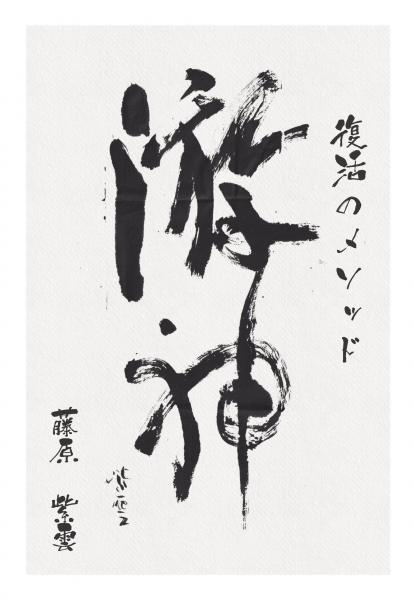 復活のメソッド
游神
紫雲
藤原 紫雲